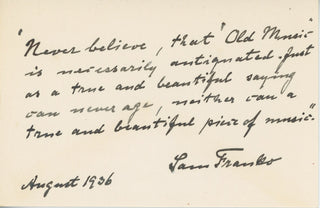 "Never believe, that "Old Music"
is necessarily antiquated. Just
as a true and beautiful saying
can never age, neither can a
true and beautiful piece of music."
Sam Franko
August 1936